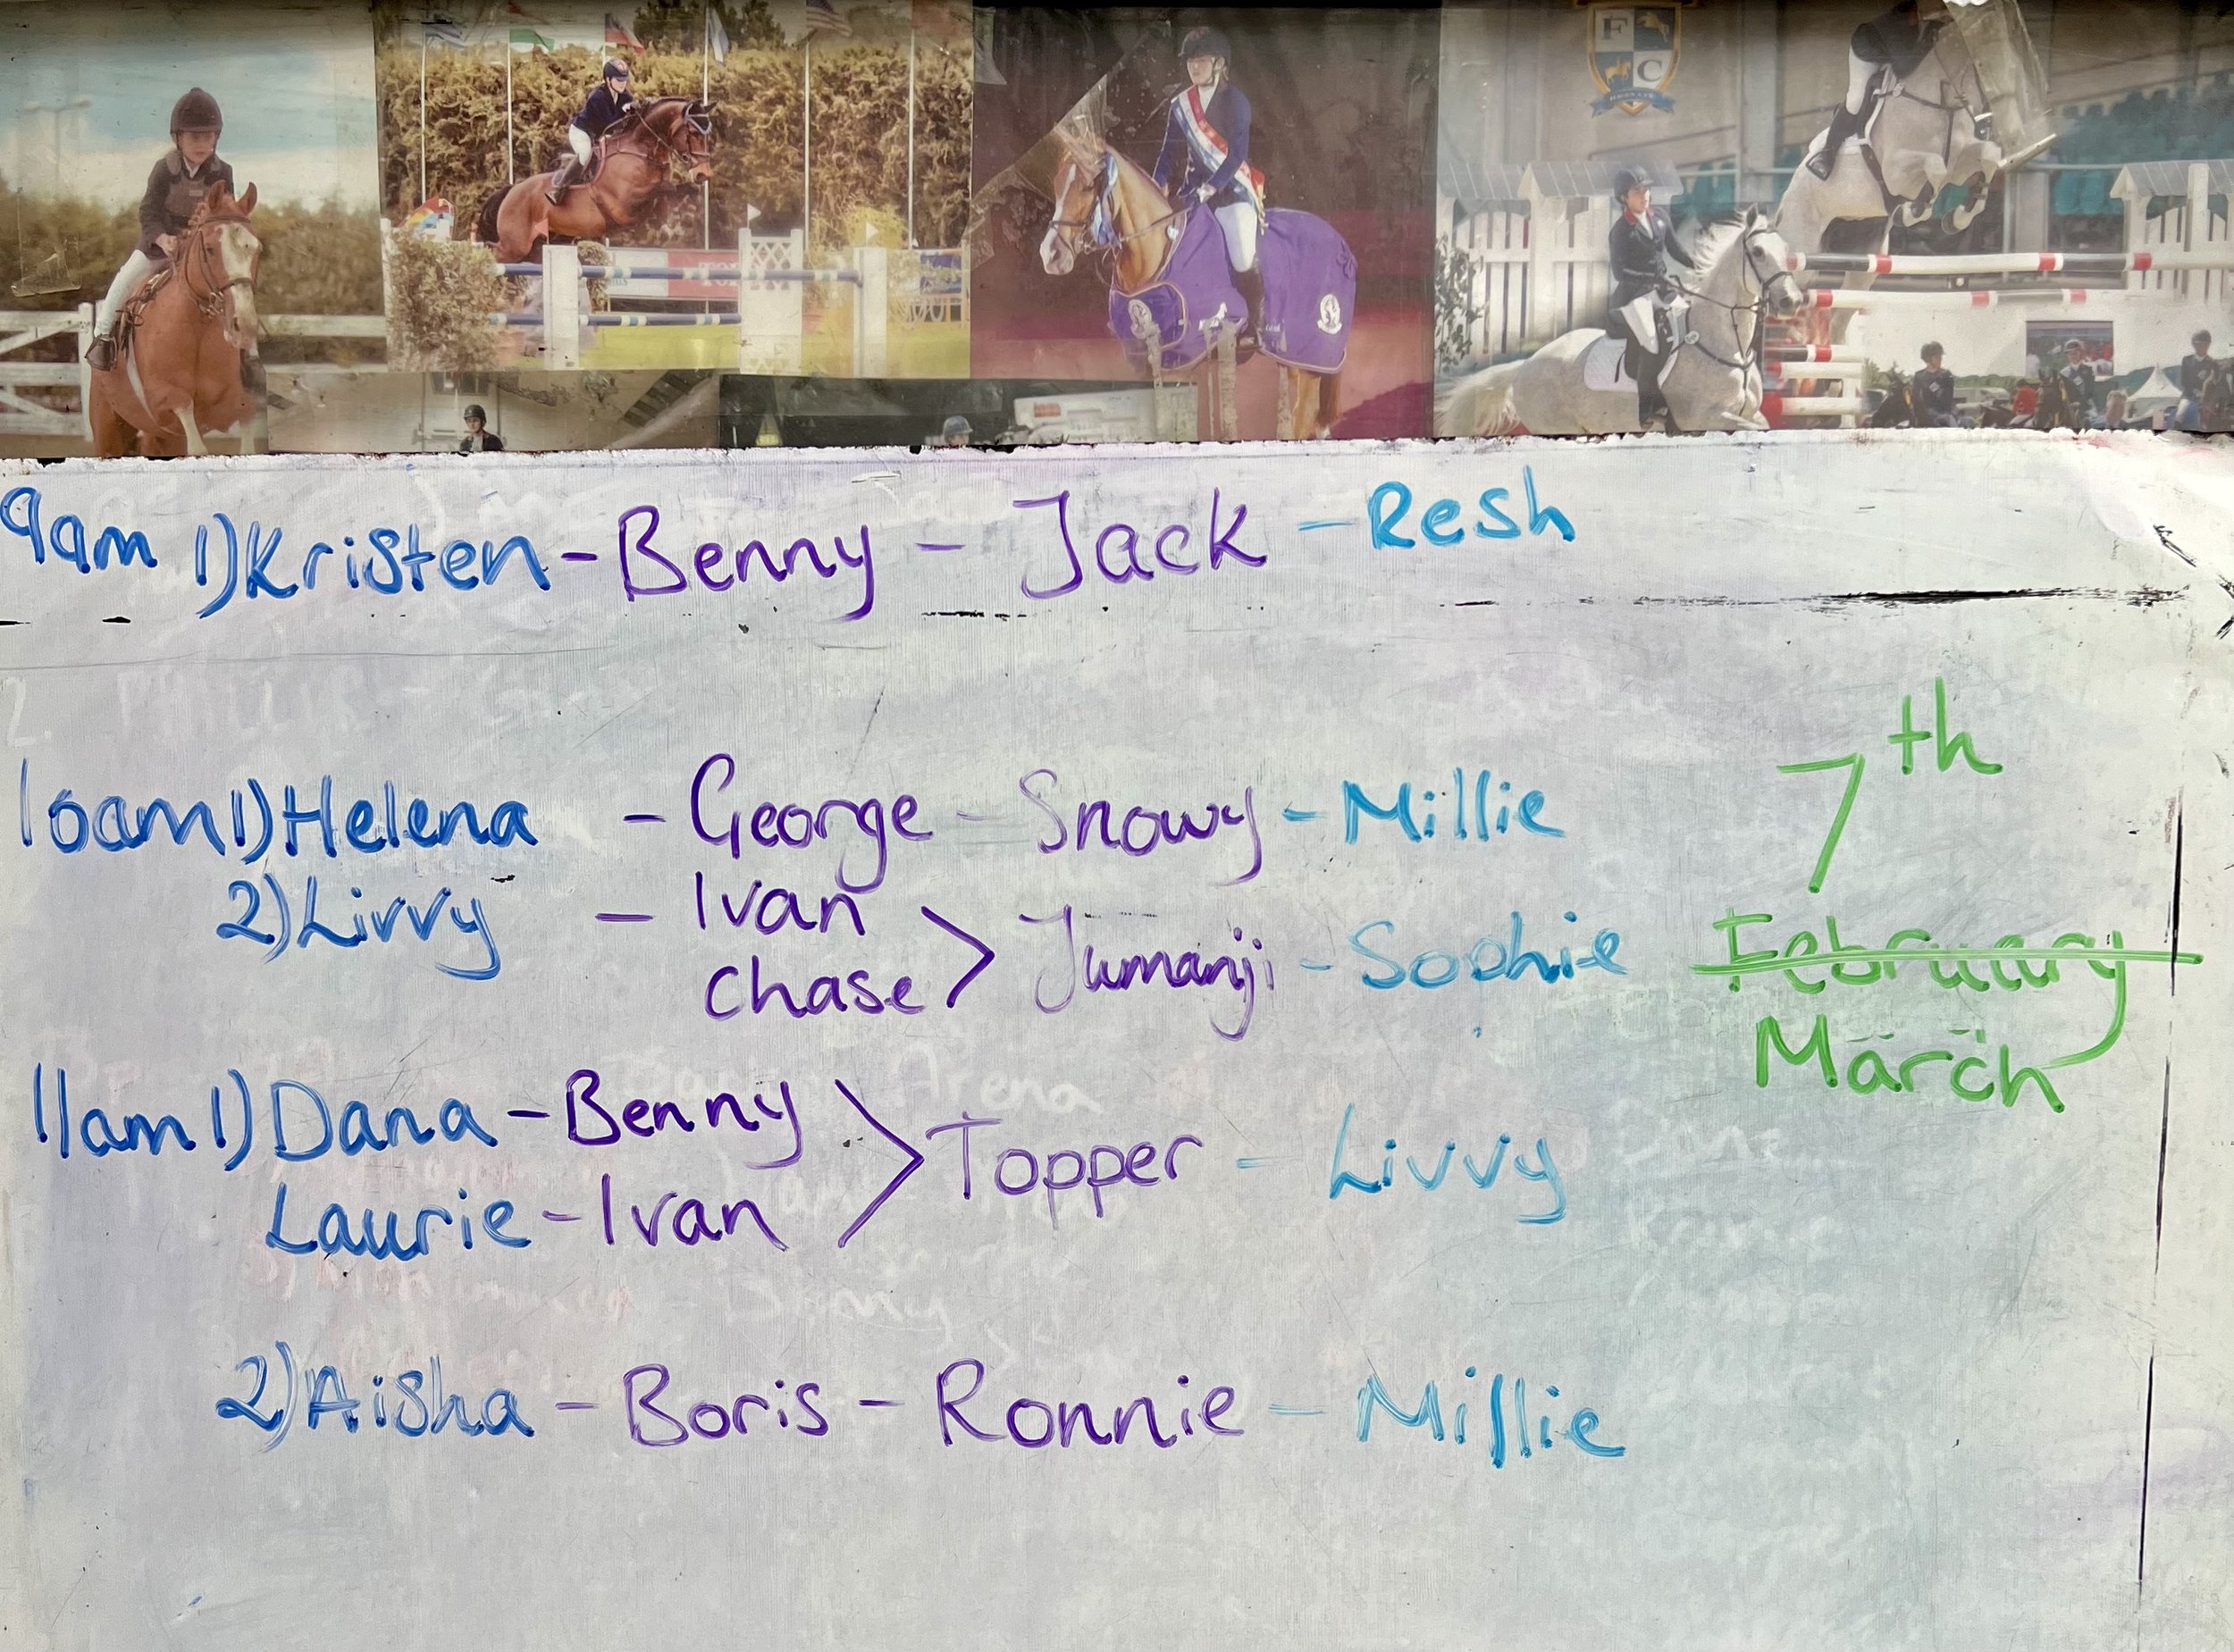 9am 1) Kristen - Benny - Jack - Resh
7th
10am 1) Helena - George - Snowy - Millie
2) Livvy - Ivan
chase > Jumanji - Sophie
February
March
11am 1) Dana - Benny
Laurie - Ivan > Topper - Livvy
2) Aisha - Boris - Ronnie - Millie